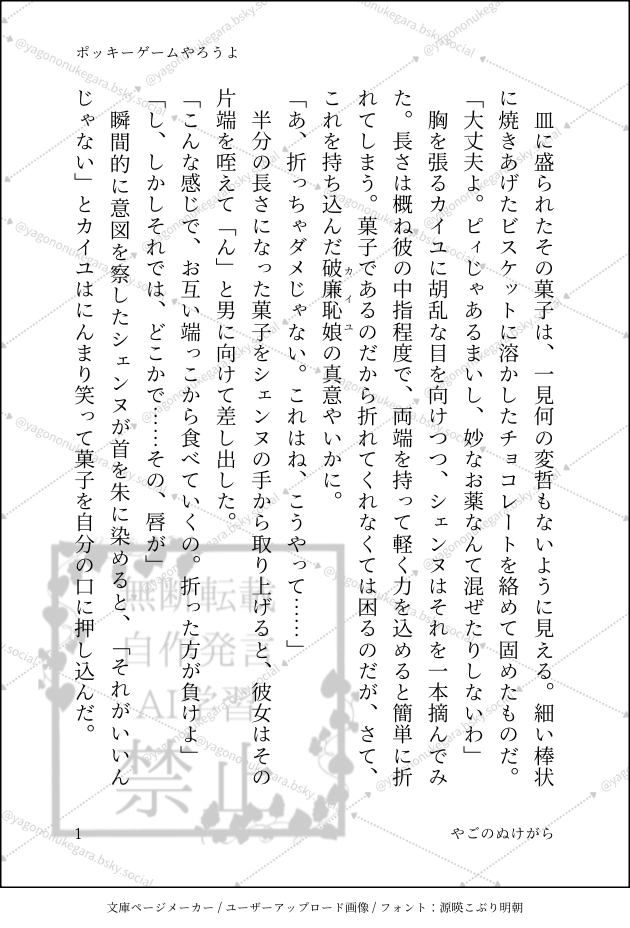 ポッキーゲームやろうよ
　皿に盛られたその菓子は、一見何の変哲もないように見える。細い棒状
に焼きあげたビスケットに溶かしたチョコレートを絡めて固めたものだ。
「大丈夫よ。ピィじゃあるまいし、妙なお薬なんて混ぜたりしないわ」
　胸を張るカイユに胡乱な目を向けつつ、シェンヌはそれを一本摘んでみ
た。長さは概ね彼の中指程度で、両端を持って軽く力を込めると簡単に折
れてしまう。菓子であるのだから折れてくれなくては困るのだが、さて、
これを持ち込んだ破廉恥娘の真意やいかに。
カイユ
「あ、折っちゃダメじゃない。これはね、こうやって……」
　半分の長さになった菓子をシェンヌの手から取り上げると、彼女はその
片端を咥えて「ん」と男に向けて差し出した。
「こんな感じで、お互い端っこから食べていくの。折った方が負けよ」
「し、しかしそれでは、どこかで……その、唇が」
　瞬間的に意図を察したシェンヌが首を朱に染めると、「それがいいん
じゃない」とカイユはにんまり笑って菓子を自分の口に押し込んだ。
無断転載
自作発言
AI学習
禁止
@yagononukegara.bsky.social
1
やごのぬけがら
文庫ページメーカー / ユーザーアップロード画像 / フォント：源暎こぶり明朝